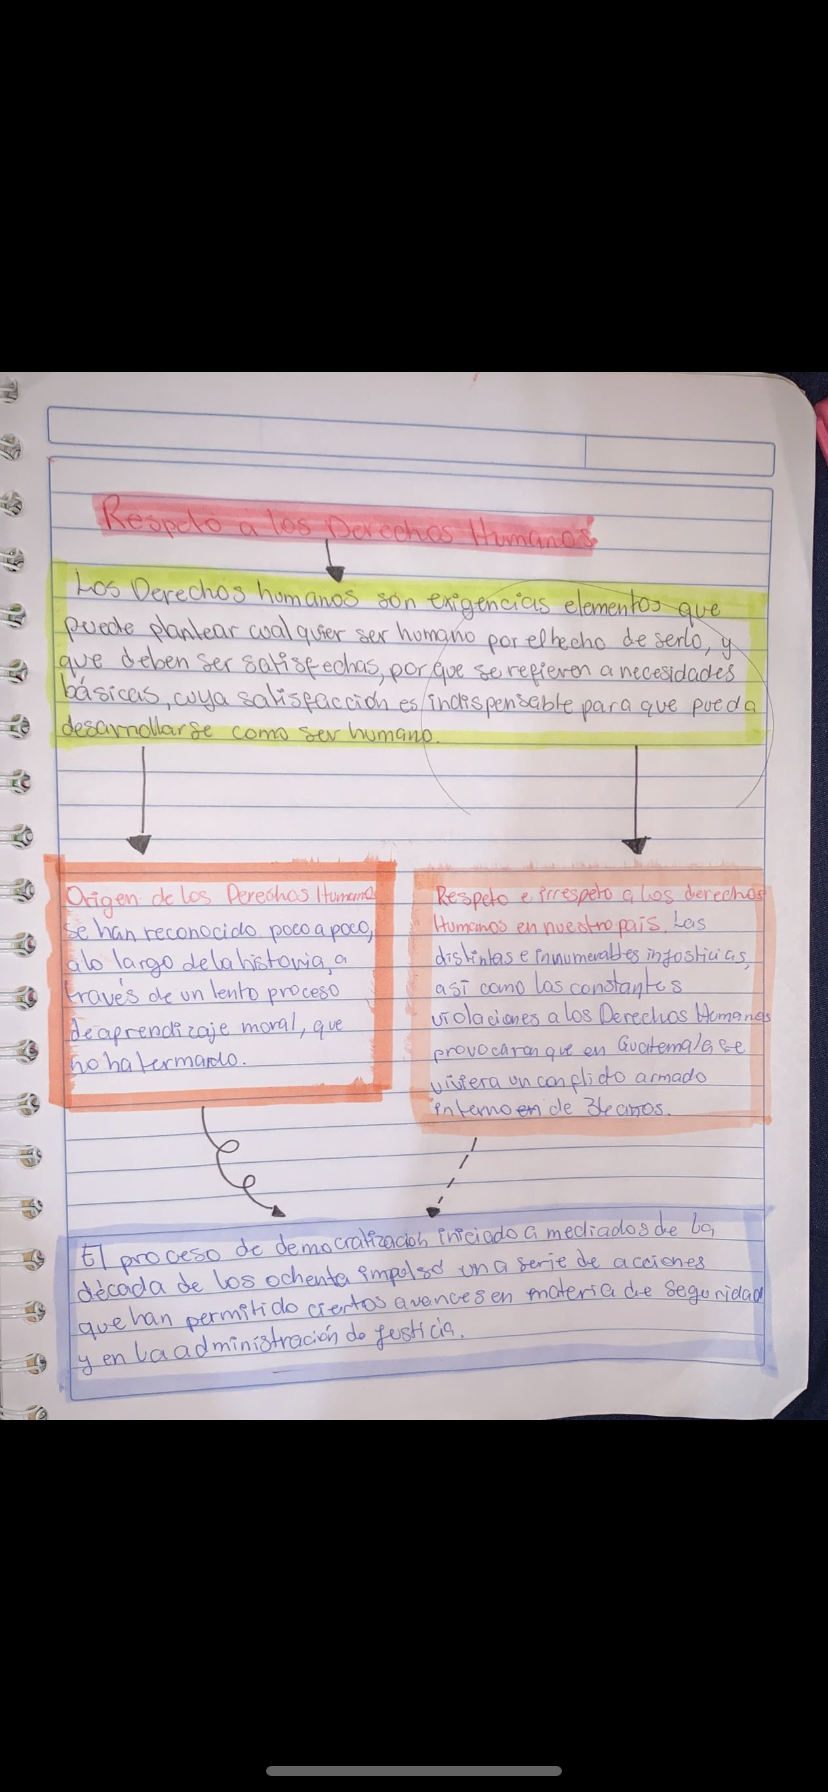 Respeto a los Derechos Humanos.
Los Derechos humanos son exigencias elementos que
puede plantear cualquier ser humano por el hecho de serlo, y
que deben ser satisfechas, por que se refieren a necesidades
básicas, cuya satisfacción es indispensable para que pueda
desarrollarse como ser humano.
Origen de los Derechos Humanos
se han reconocido poco a poco,
a lo largo de la historia, a
través de un lento proceso
de aprendizaje moral, que
no ha termardo.
Respeto e irrespeto a los derechos
Humanos en nuestro país. Las
distintas e innumerables injosticias,
así como las constantes
violaciones a los Derechos Humanos
provocaron que en Guatemala se
viviera un conflicto armado
interno en de 36 años.
El proceso de democratización iniciado a mediados de la
década de los ochenta impulso una serie de acciones
que han permitido ciertos avances en materia de seguridad
y en la administración de justicia.